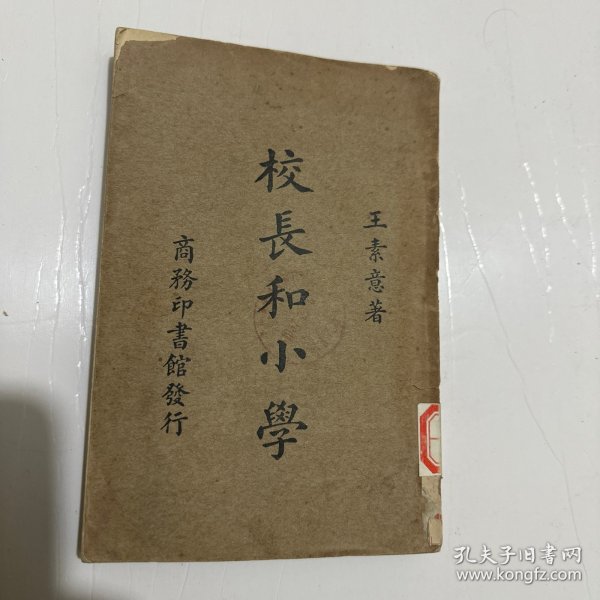 王素意著
校長和小學
商務印書館發行
孔夫子旧书网
www.kongfz.com